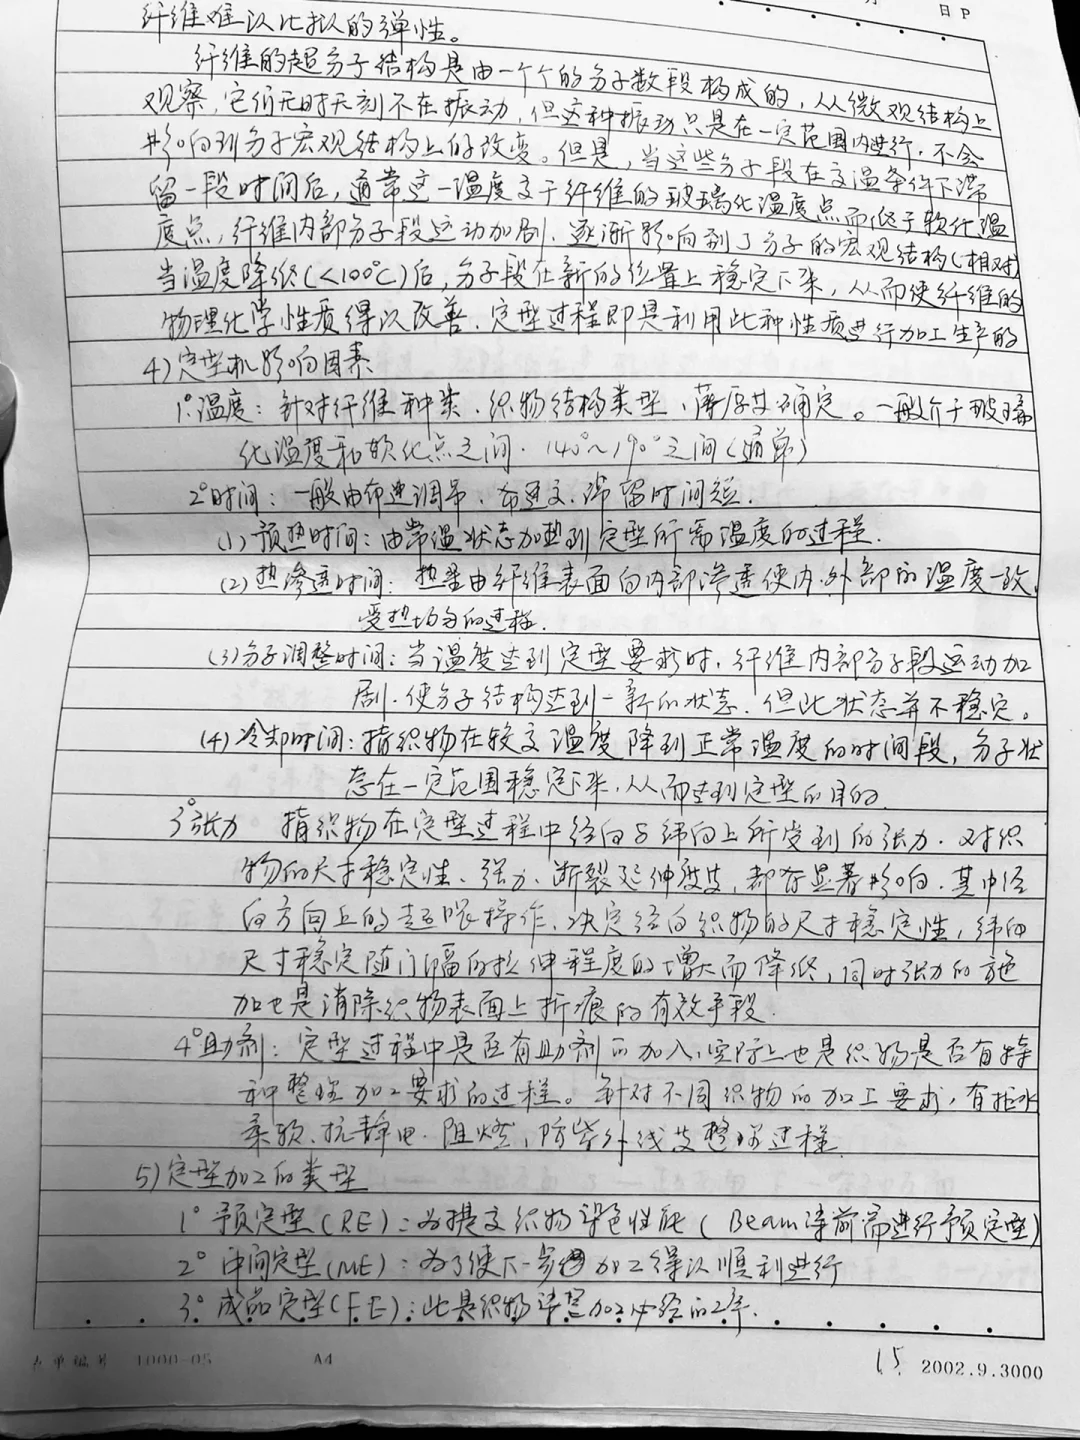 日 P
纤维难以比拟的弹性。
纤维的超分子结构是由一个个的分子数段构成的，从微观结构上
观察，它们无时无刻不在振动，但这种振动只是在一定范围内进行，不会
影响到分子宏观结构上的改变。但是，当这些分子段在高温条件下滞
留一段时间后，通常这一温度高于纤维的玻璃化温度点而低于软化温
度点，纤维内部分子段运动加剧，逐渐影响到了分子的宏观结构(相对)
当温度降低(<100℃)后，分子段在新的位置上稳定下来，从而使纤维的
物理化学性质得以改善，定型过程即是利用此种性质进行加工生产的
4)定型机影响因素
1°温度：针对纤维种类、织物结构类型、薄厚等确定。一般介于玻璃
化温度和软化点之间. 140°~190°之间(通常)
2°时间：一般由布速调节、布速高、滞留时间短.
(1)预热时间：由常温状态加热到定型所需温度的过程.
(2)热渗透时间：热量由纤维表面向内部渗透使内、外部的温度一致，
受热均匀的过程.
(3)分子调整时间：当温度达到定型要求时，纤维内部分子段运动加
剧，使分子结构达到一新的状态，但此状态并不稳定。
(4)冷却时间：指织物在较高温度降到正常温度的时间段，分子状
态在一定范围稳定下来，从而达到定型的目的.
3°张力 指织物在定型过程中经向与纬向上所受到的张力. 对织
物的尺寸稳定性、强力、断裂延伸度等，都有显著影响. 其中经
向方向上的超喂操作，决定经向织物的尺寸稳定性，纬向
尺寸稳定随门幅的拉伸程度的增大而降低，同时张力的施
加也是消除织物表面上折痕的有效手段.
4°助剂：定型过程中是否有助剂的加入，实际上也是织物是否有特
种整理加工要求的过程。针对不同织物的加工要求，有拒水
柔软、抗静电、阻燃，防紫外线等整理过程
5)定型加工的类型
1° 预定型(RE)：为提高织物染色性能(Beam染前需进行预定型)
2° 中间定型(ME)：为了使下一步的加工得以顺利进行
3° 成品定型(FE)：此是织物染整加工必经的工序.
表单编号 1000-05 A4 15. 2002.9.3000